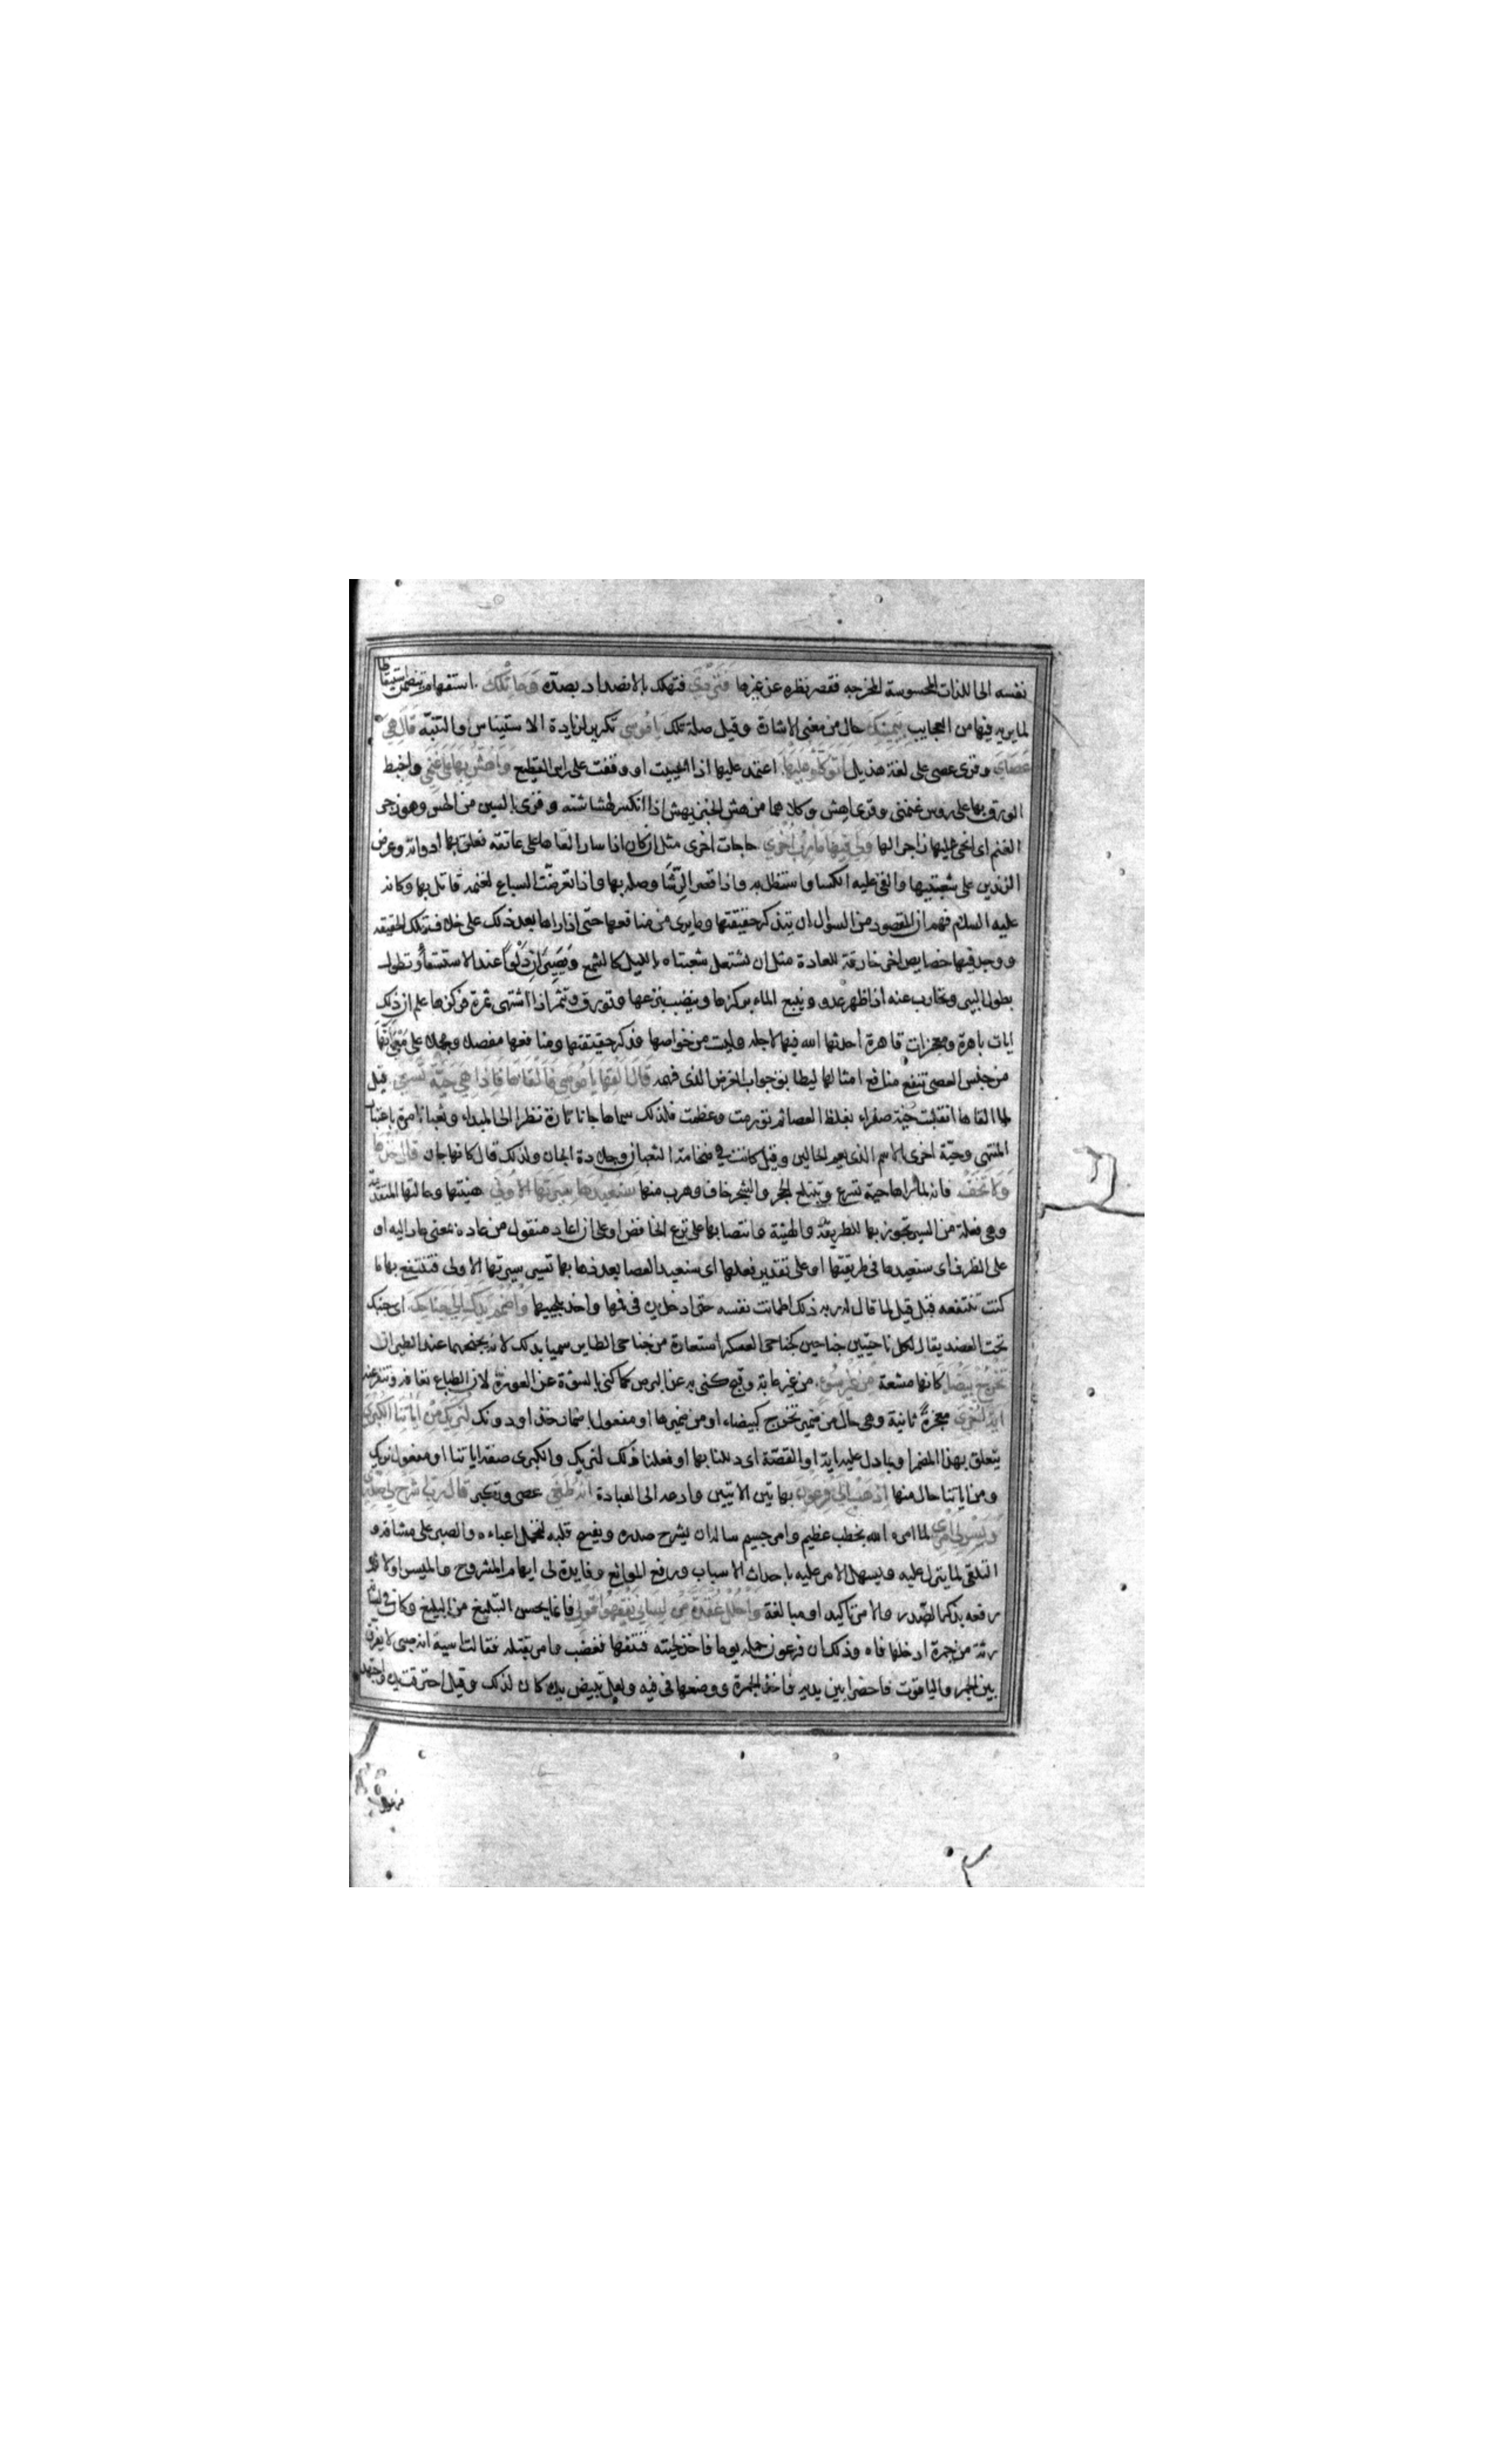 نفسه الى اللذات المحسوسة المخرجه فقصر نظره عن غيرها فَتَرْدَى فتهلك بالانصداد بصدّه وَمَا تِلْكَ استفهام يتضمن استيقاظا
لما يريه فيها من العجايب بِيَمِينِكَ حال من معنى الاشارة وقيل صلة تلك يَا مُوسَى تكرير لزيادة الاستيناس والتنبّه قَالَ هِيَ
عَصَايَ وقرى عصى على لغة هذيل أَتَوَكَّؤُ عَلَيْهَا اعتمد عليها اذا اعييت او وقفت على راس القطيع وَأَهُشُّ بِهَا عَلَى غَنَمِي واخبط
الورق بها على روس غنمى وقرى اهش وكلاهما من هش الخبز يهش اذا انكسر لهشاشته وقرى بالسين من الهس وهو زجر
الغنم اى انحى عليها زاجرا لها وَلِيَ فِيهَا مَآرِبُ أُخْرَى حاجات اخرى مثل ان كان اذا سار القاها على عاتقه فعلق بها ادواته وعرض
الزندين على شعبتيها والقى عليه الكسا واستظل به واذا قصر الرّشا وصله بها واذا تعرضت السباع لغنمه قاتل بها وكانه
عليه السلام فهم ان المقصود من السؤال ان يتذكر حقيقتها وما يرى من منافعها حتى اذا راها بعد ذلك على خلاف تلك الحقيقه
ووجد فيها خصايص اخرى خارقة للعادة مثل ان تشتعل شعبتاه بالليل كالشمع وتصيران دلوًا عند الاستسقا وتطول
بطول البير وتحارب عنه اذا ظهر عدو وينبع الماء بركزها وينضب بنزعها وتورق وتثمر اذا اشتهى ثمرة فركزها علم ان ذلك
ايات باهرة ومعجزات قاهرة احدثها الله فيها لاجله وليست من خواصها فذكر حقيقتها ومنافعها مفصلا ومجملا على معنى انّها
من جنس العصى تنفع منافع امثالها ليطابق جواب الغرض الذى فهمه قَالَ أَلْقِهَا يَا مُوسَى فَأَلْقَاهَا فَإِذَا هِيَ حَيَّةٌ تَسْعَى قيل
لما القاها انقلبت حيّة صفراء بغلظ العصا ثم تورمت وعظمت فلذلك سماها جانا تارة نظرا الى المبداء وثعبانا مرة باعتبار
المنتهى وحيّة اخرى بالاسم الذى يعم الحالين وقيل كانت فى ضخامة الثعبان وجلادة الجان ولذلك قال كانها جان قَالَ خُذْهَا
وَلَا تَخَفْ فانه لما راها حية تسرع وتبتلع الحجر والشجر خاف وهرب منها سَنُعِيدُهَا سِيرَتَهَا الْأُولَى هيئتها وحالتها المتقدّمة
وهى فعلة من السير تجوز بها للطريقة والهيئة وانتصابها على نزع الخافض او على ان اعاد منقول من عاده بمعنى عاد اليه او
على الظرف اى سنعيدها فى طريقتها او على تقدير فعلها اى سنعيد العصا بعد ذهابها تسير سيرتها الاولى فتنتفع بها ما
كنت تنتفعه قبل قيل لما قال له ربه ذلك اطمانت نفسه حتى ادخل يده فى فمها واخذ بلحييها وَاضْمُمْ يَدَكَ إِلَى جَنَاحِكَ اى جنبك
تحت العضد يقال لكل ناحيتين جناحين كجناحى العسكر استعارة من جناحى الطاير سميا بذلك لانه يجنحهما عند الطيران
تَخْرُجْ بَيْضَاءَ كانها مشعة مِنْ غَيْرِ سُوءٍ من غير عاهة وقبح كنى به عن البرص كما كنى بالسوءة عن العورة لان الطباع تعافه وتنفر عنه
آيَةً أُخْرَى معجزة ثانية وهى حال من ضمير تخرج كبيضاء او من ضميرها او مفعول باضمار خذ او دونك لِنُرِيَكَ مِنْ آيَاتِنَا الْكُبْرَى
يتعلق بهذا المضمر او بما دل عليه اية او القصّة اى دللنا بها او فعلنا ذلك لنريك والكبرى صفة اياتنا او مفعول نريك
ومن اياتنا حال منها اذْهَبْ إِلَى فِرْعَوْنَ بهاتين الايتين وادعه الى العبادة إِنَّهُ طَغَى عصى وتكبر قَالَ رَبِّ اشْرَحْ لِي صَدْرِي
وَيَسِّرْ لِي أَمْرِي لما امره الله بخطب عظيم وامر جسيم ساله ان يشرح صدره ويفسح قلبه لتحمل اعباءه والصبر على مشاقه و
التلقى لما ينزل عليه ويسهل الامر عليه باحداث الاسباب ورفع الموانع وفايدة لى ابهام المشروح والميسر اولا ثم
رفعه بذكر الصّدر والامر تاكيدا ومبالغة وَاحْلُلْ عُقْدَةً مِنْ لِسَانِي يَفْقَهُوا قَوْلِي فانما يحسن التبليغ من البليغ وكان فى لسانه
رتة من جمرة ادخلها فاه وذلك ان فرعون حمله يوما فاخذ لحيته فنتفها فغضب وامر بقتله فقالت اسية انه صبى لا يفرق
بين الجمر والياقوت فاحضرا بين يديه فاخذ الجمرة ووضعها فى فيه ولعل تبييض يده كان لذلك وقيل احترقت يده واجتهد